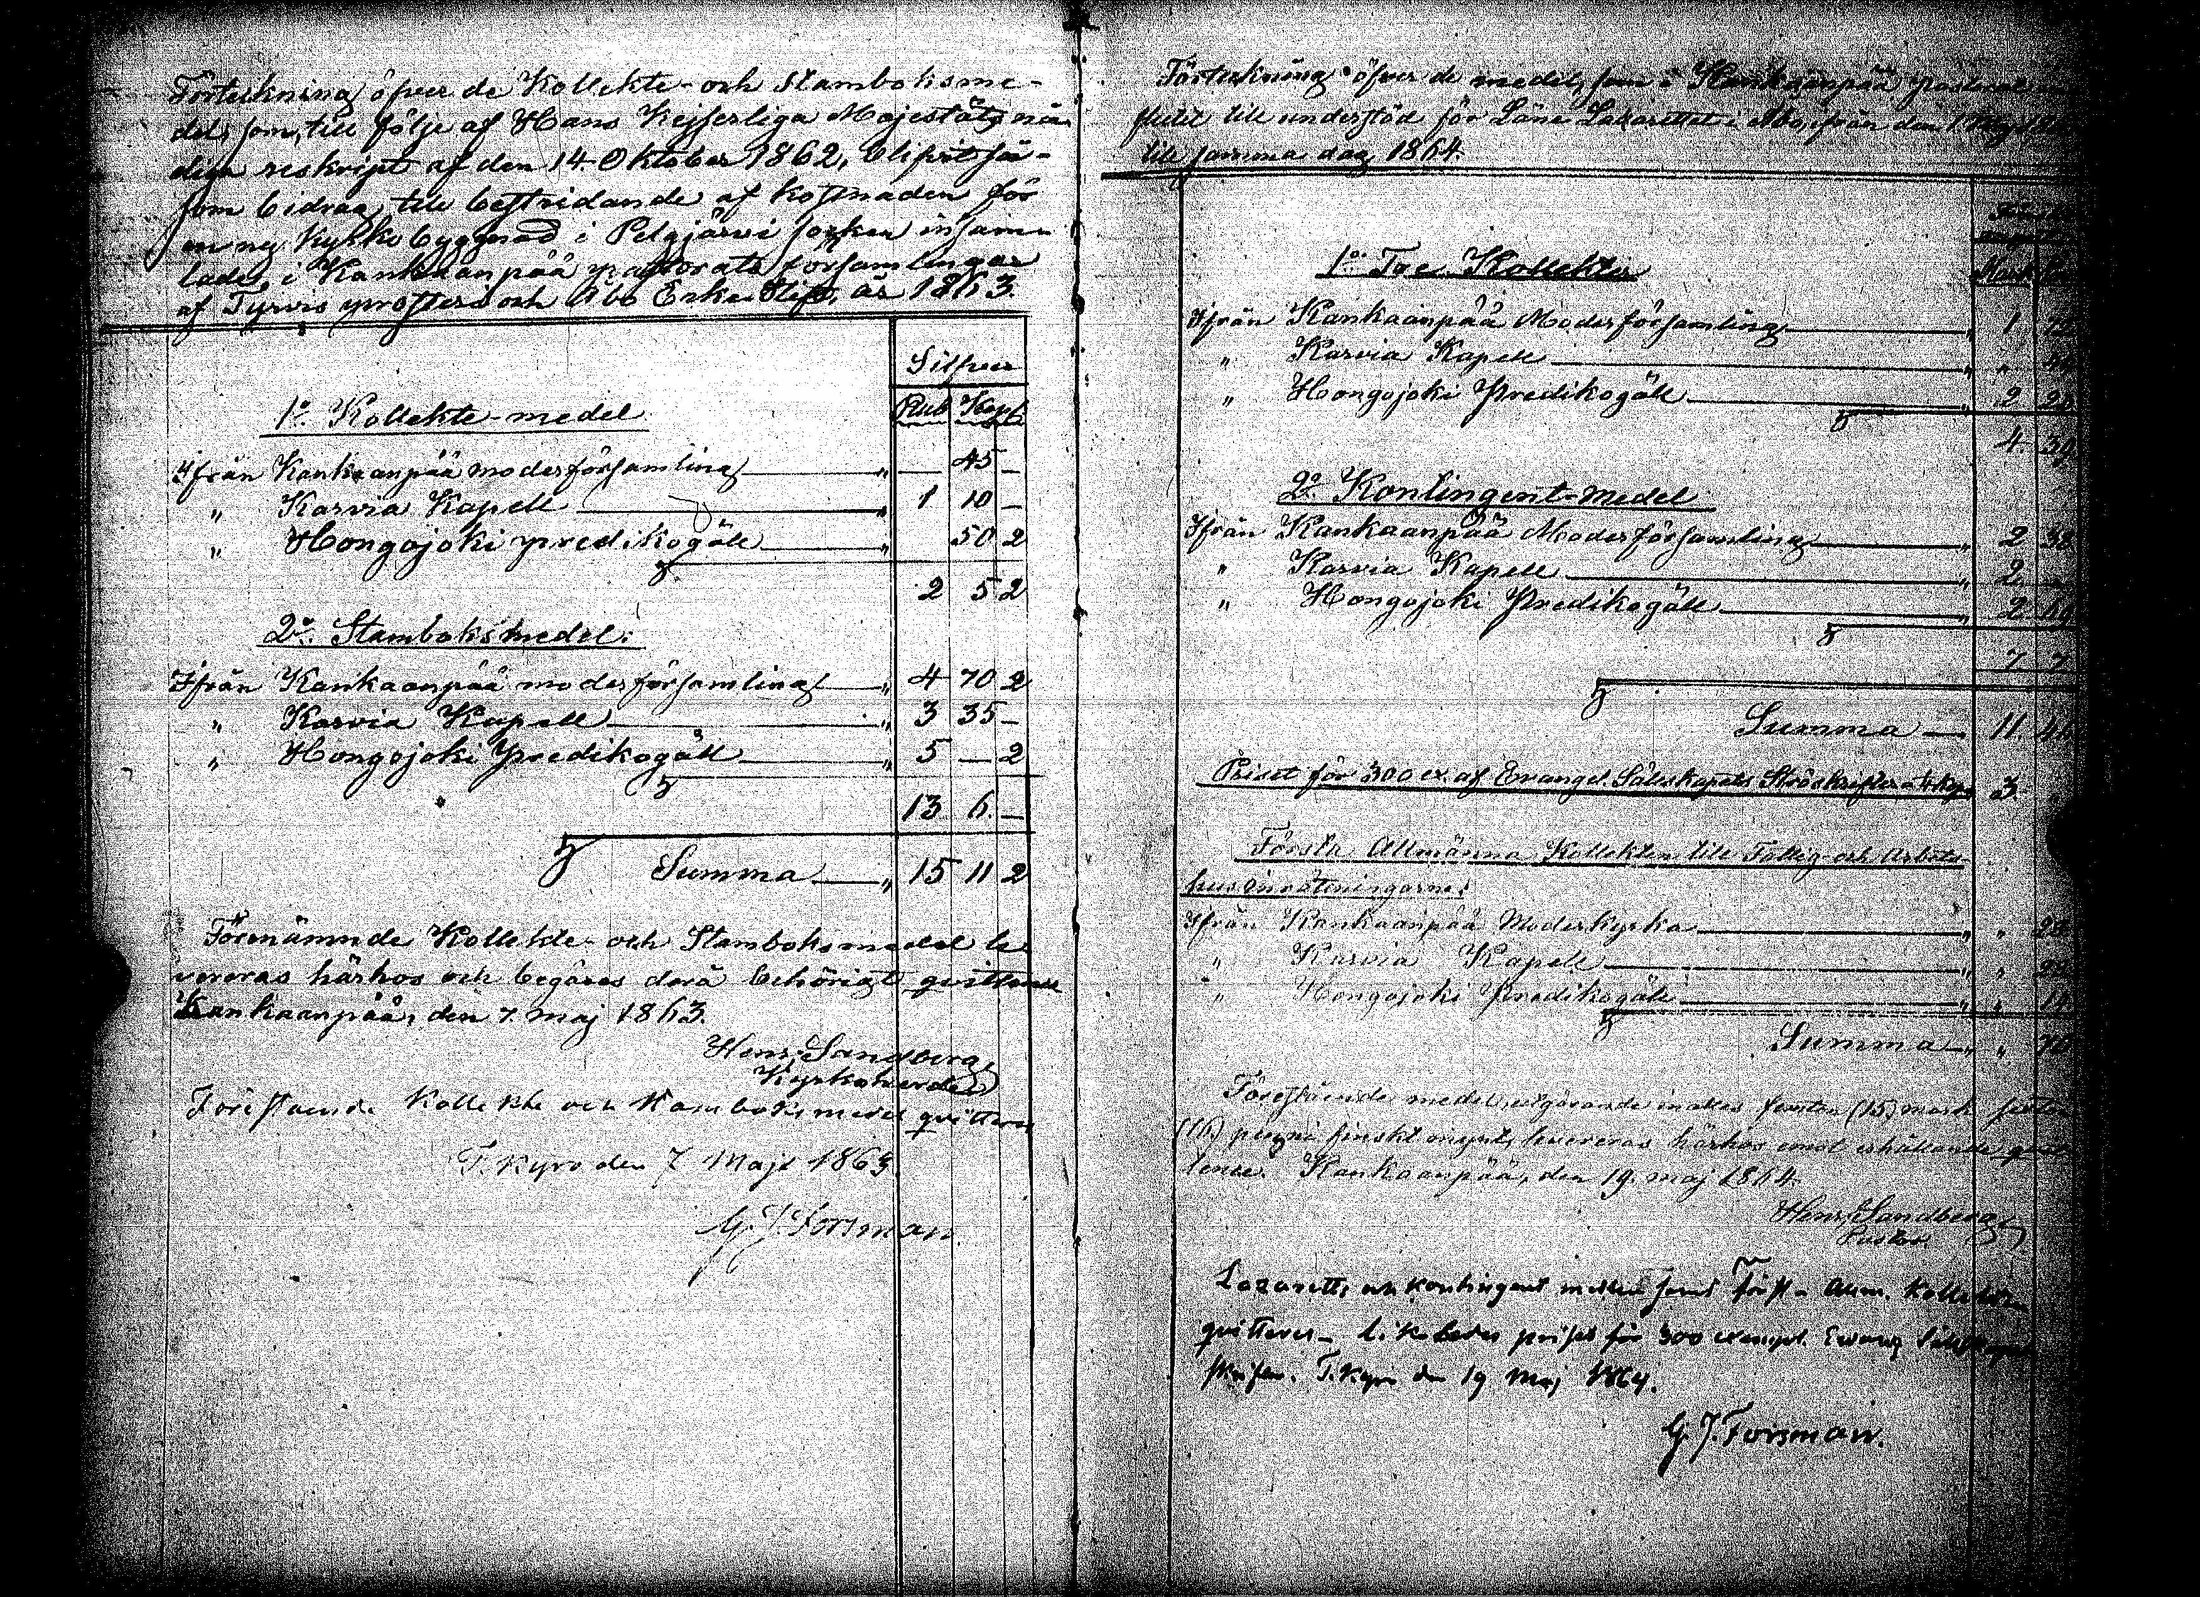 Förteckning öfver de Kollekte- och Stamboksme-
del, som, till följe af Hans Kejserliga Majestäts nå-
diga reskript af den 14 Oktober 1862, blifvit så-
som bidrag till bestridande af kostnaden för
en ny kyrkobyggnad i Pelgjärvi socken insam-
lade, i Kankaanpää pastorats församlingar
af Tyrvis prosteri och Åbo Erke Stift, år 1863.
Silfver
Rub Kop.
1o. Kollekte-medel
Ifrån Kankaanpää moderförsamling — " — 45 —
" Karvia Kapell — " 1 10 —
" Hongojoki predikogäll — " 50 2
2 5 2
2o. Stamboksmedel:
Ifrån Kankaanpää moderförsamling — " 4 70 2
" Karvia Kapell — " 3 35 —
" Hongojoki Predikogäll — " 5 — 2
13 6 —
Summa — " 15 11 2
Förenämnde Kollekte- och Stamboksmedel le-
vereras härhos och begäres derå behörigt qvittence
Kankaanpää, den 7. maj 1863.
Henr. Sandberg
Kyrkoherde
Förestående Kollekte och Stamboksmedel qvitteras
T. Kyro den 7 Maji 1863.
G. J. Forsman
Förteckning öfver de medel, som i Kankaanpää pastorat
flutit till understöd för Läns Lazarettet i Åbo, ifrån den 1 Maj
till samma dag 1864.
Mark
1o. Tre Kollekter
Ifrån Kankaanpää Moderförsamling — " 1
" Karvia Kapell — " "
" Hongojoki Predikogäll — " 2
4. 39
2o. Kontingent-medel
Ifrån Kankaanpää Moderförsamling — " 2 38
" Karvia Kapell — " 2 —
" Hongojoki Predikogäll — " 2
7 7
Summa — 11. 46
Priset för 300 ex. af Evangel. Sällskapets Ströskrifter 3
Första Allmänna Kollekten till Fattig- och Arbets-
husinrättningarne:
Ifrån Kankaanpää Moderkyrka — " "
" Karvia Kapell — " "
" Hongojoki Predikogäll — " "
Summa — " " 70
Förestående medel, utgörande inalles femton (15) mark
(16) penni finskt mynt, levereras härhos emot erhållande
tence. Kankaanpää, den 19. maj 1864.
Henr. Sandberg
Pastor.
Lazaretts och kontingent medlen samt Först. Allm. Kollekten
qvitteras — likaledes priset för 300 exempl. Evang.
skrifter. T. Kyro den 19 Maj 1864.
G. J. Forsman.